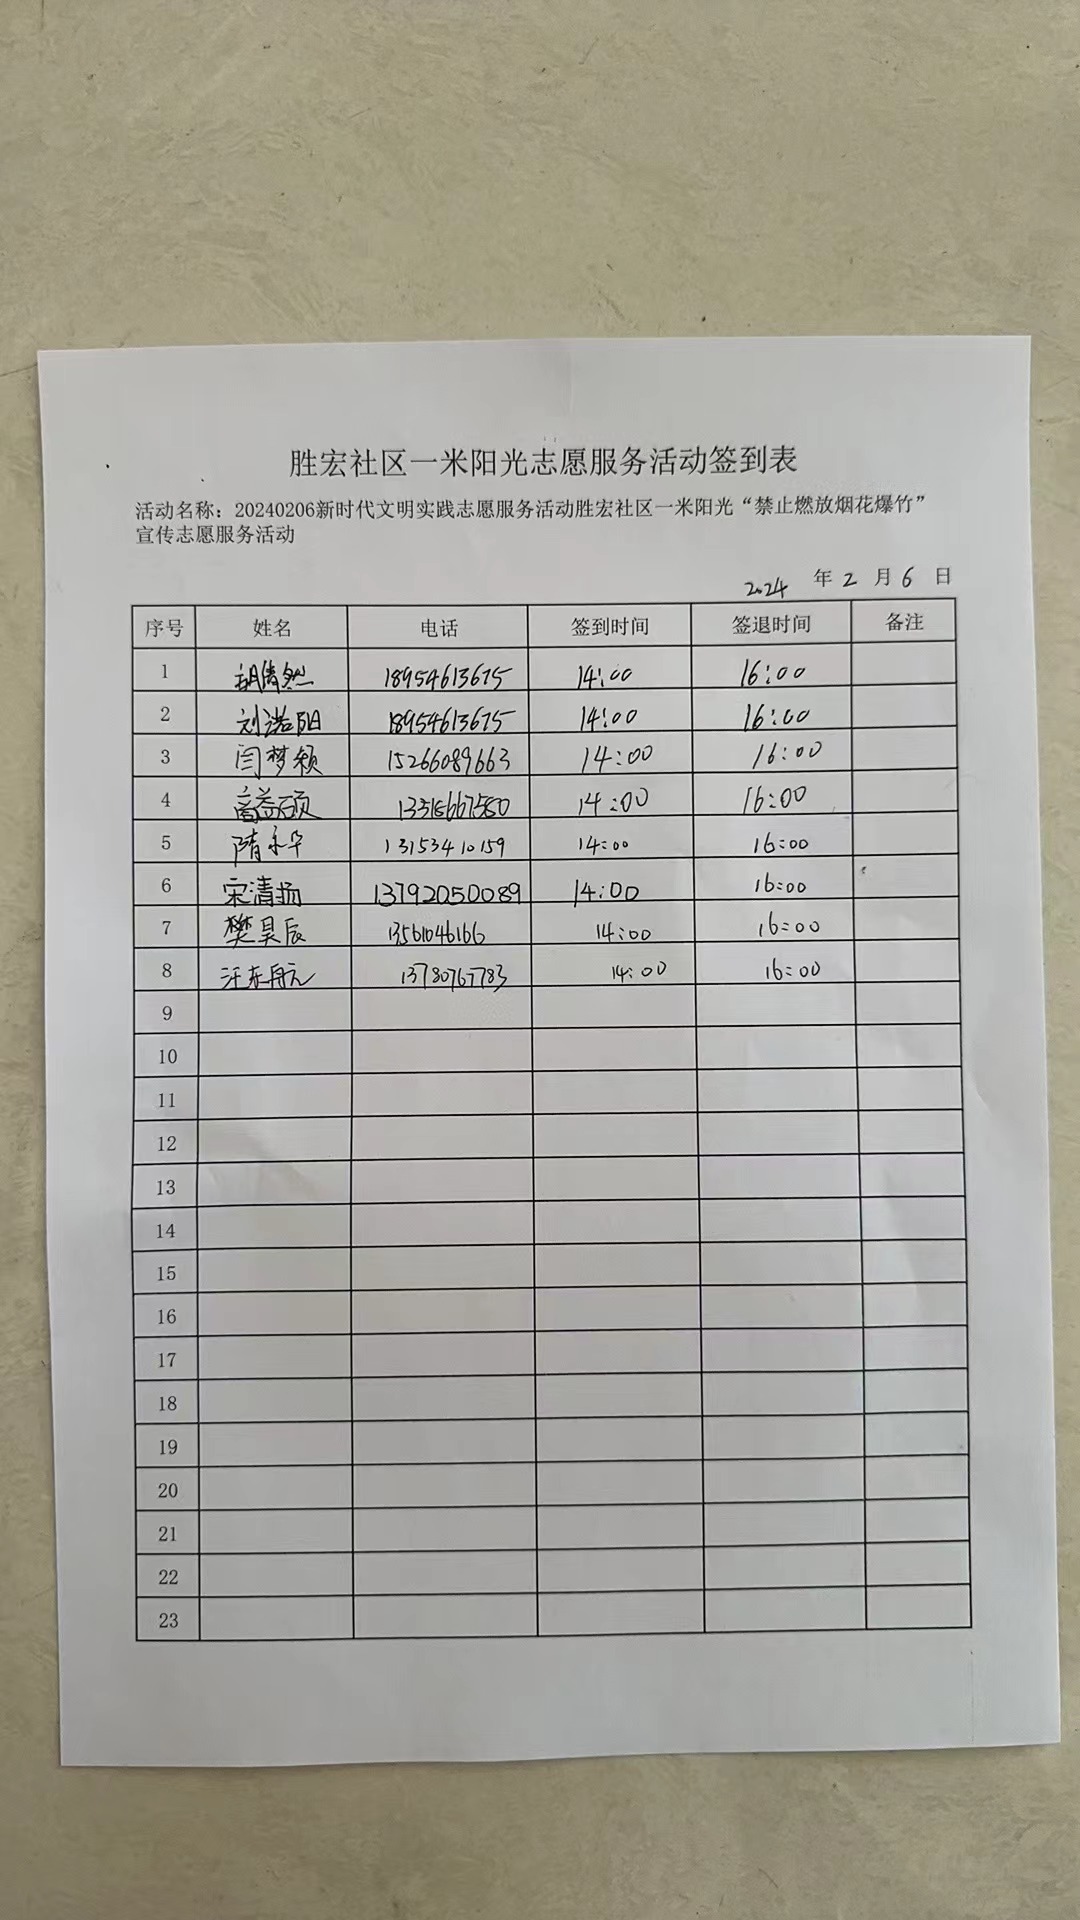 胜宏社区一米阳光志愿服务活动签到表
活动名称：20240206新时代文明实践志愿服务活动胜宏社区一米阳光“禁止燃放烟花爆竹”
宣传志愿服务活动
2024 年 2 月 6 日
序号 姓名 电话 签到时间 签退时间 备注
1 胡倩然 18954613675 14:00 16:00
2 刘诺阳 18954613675 14:00 16:00
3 闫梦颖 15266089663 14:00 16:00
4 高益硕 14:00 16:00
5 隋永华 13153410159 14:00 16:00
6 宋清扬 13792050089 14:00 16:00
7 樊昊辰 13561046166 14:00 16:00
8 汪东航 13780767783 14:00 16:00
9
10
11
12
13
14
15
16
17
18
19
20
21
22
23